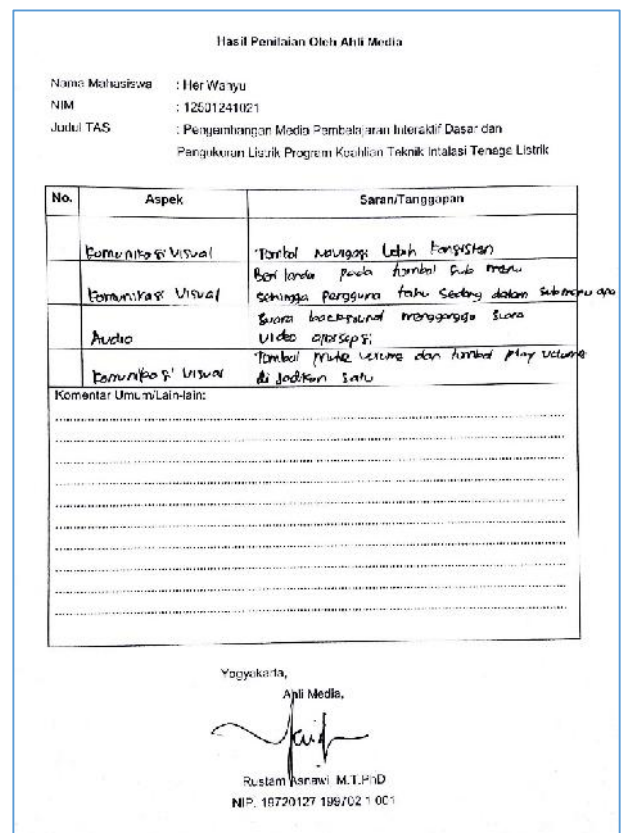 Hasil Penilaian Oleh Ahli Media
Nama Mahasiswa : Her Wahyu
NIM : 12501241021
Judul TAS : Pengembangan Media Pembelajaran Interaktif Dasar dan
Pengukuran Listrik Program Keahlian Teknik Intalasi Tenaga Listrik
No. Aspek Saran/Tanggapan
Komunikasi Visual Tombol Navigasi Lebih konsisten
Beri tanda pada tombol sub menu
Komunikasi Visual sehingga pengguna tahu sedang dalam submenu apa
Suara background mengganggu suara
Audio video apersepsi
Tombol mute volume dan tombol play volume
Komunikasi Visual di jadikan satu
Komentar Umum/Lain-lain:
Yogyakarta,
Ahli Media,
Rustam Asnawi, M.T.PhD
NIP. 19720127 199702 1 001